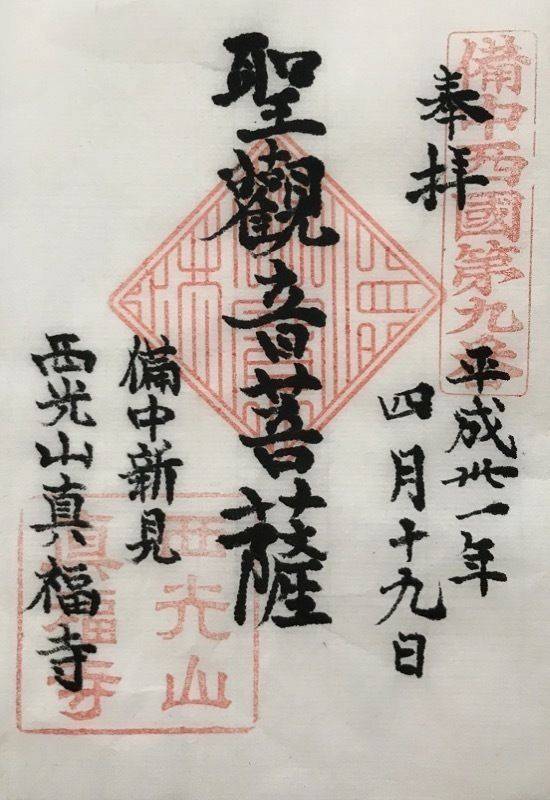 備中西國第九番
奉拝
平成卅一年
四月十九日
聖觀音菩薩
備中新見
西光山真福寺
西光山
真福寺